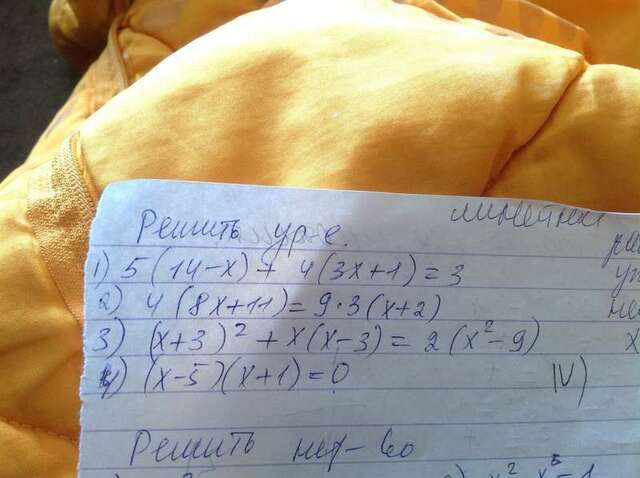 Решить ур-е.
линейные
1) 5(14-x) + 4(3x+1) = 3
2) 4(8x+11) = 9·3(x+2)
3) (x+3)² + x(x-3) = 2(x²-9)
4) (x-5)(x+1) = 0
IV)
Решить нер-во